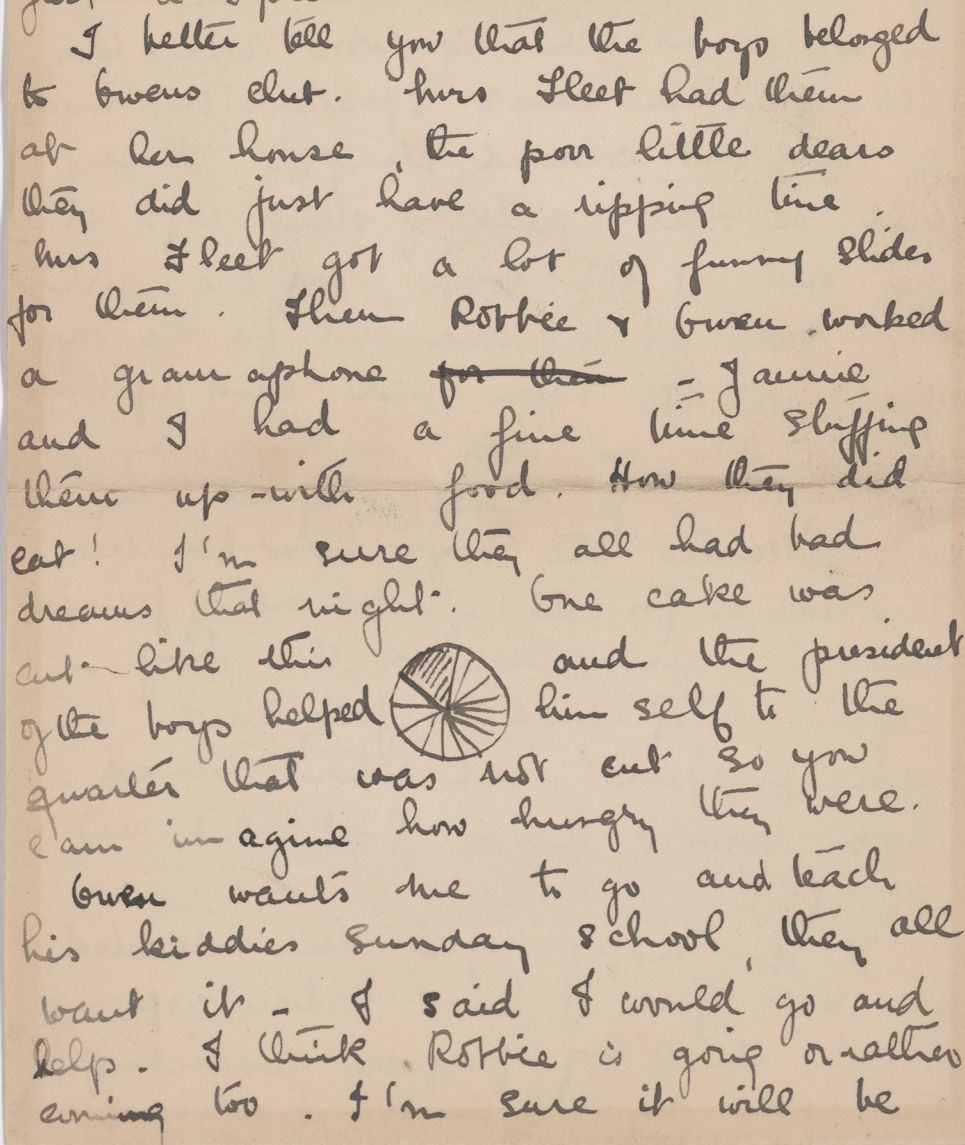 I better tell you that the boys belonged
to Gwens club. Mrs Fleet had them
at her house, the poor little dears
they did just have a ripping time.
Mrs Fleet got a lot of funny slides
for them. Then Robbie & Gwen worked
a gramaphone for them - Jannie
and I had a fine time stuffing
them up with food. How they did
eat! I'm sure they all had bad
dreams that night. One cake was
cut like this and the president
of the boys helped him self to the
quarter that was not cut so you
can imagine how hungry they were.
Gwen wants me to go and teach
his kiddies Sunday school, they all
want it - I said I would go and
help. I think Robbie is going or rather
coming too. I'm sure it will be